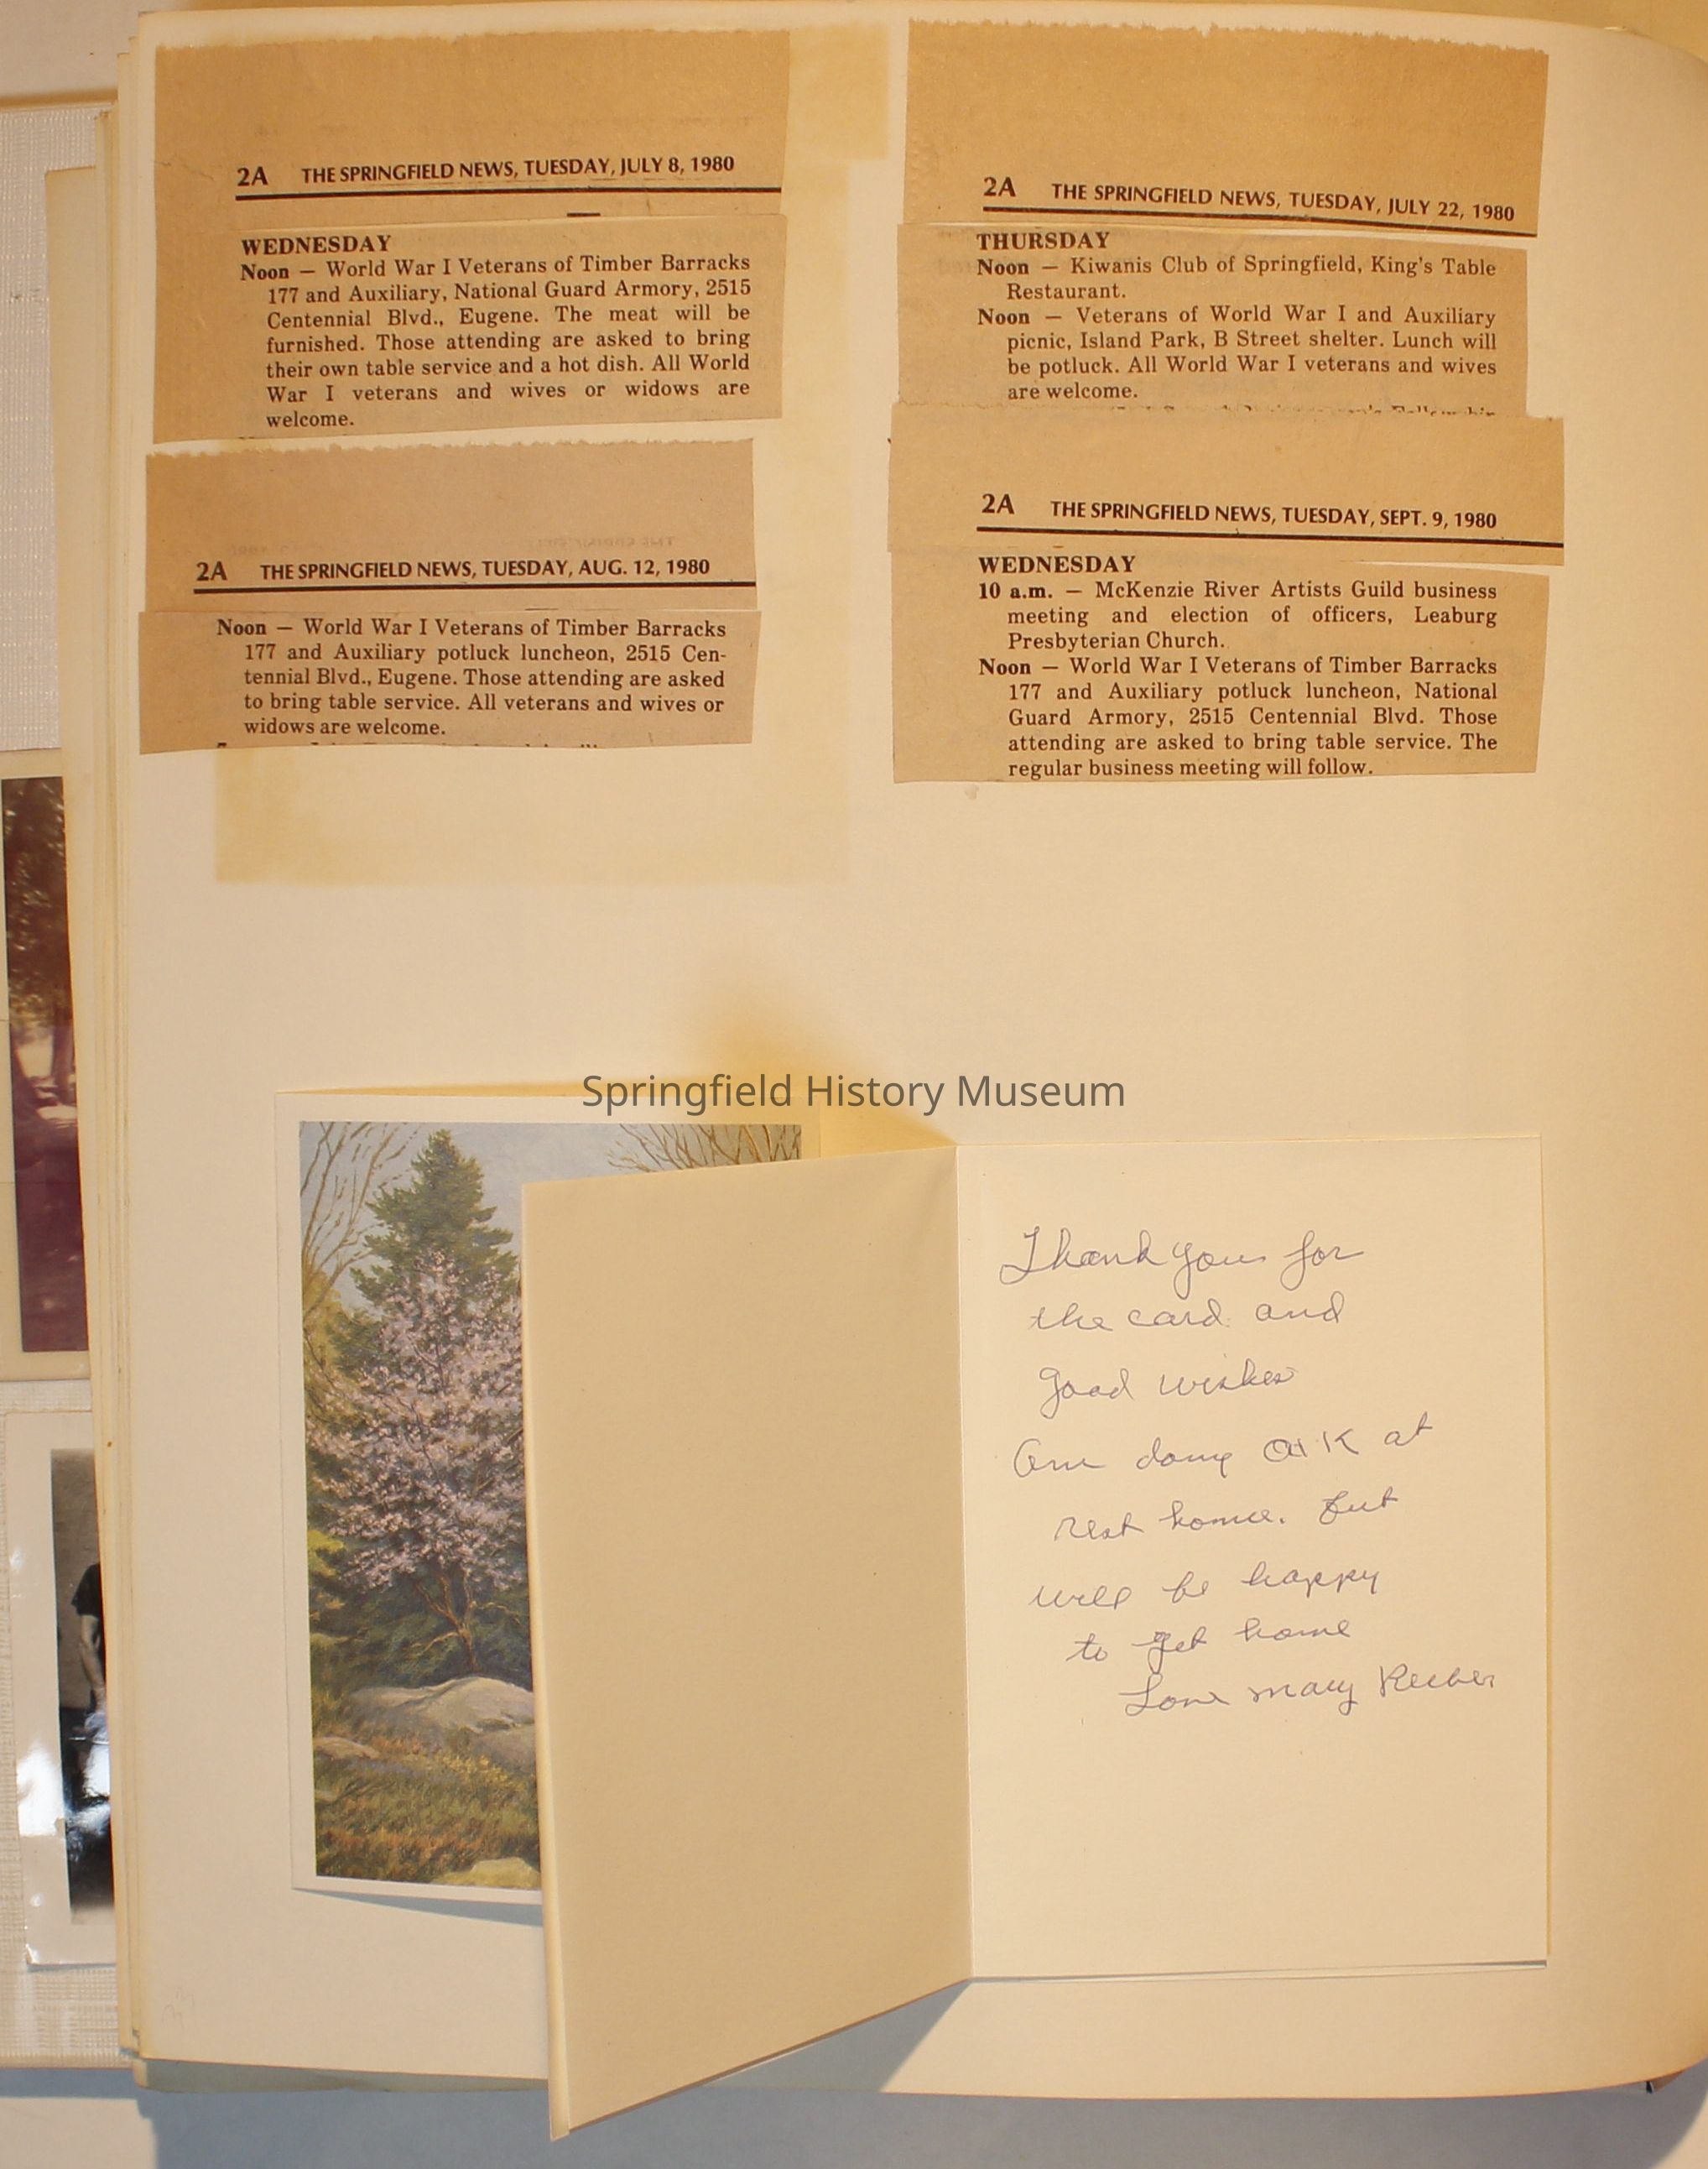 2A THE SPRINGFIELD NEWS, TUESDAY, JULY 8, 1980
WEDNESDAY
Noon — World War I Veterans of Timber Barracks
177 and Auxiliary, National Guard Armory, 2515
Centennial Blvd., Eugene. The meat will be
furnished. Those attending are asked to bring
their own table service and a hot dish. All World
War I veterans and wives or widows are
welcome.
2A THE SPRINGFIELD NEWS, TUESDAY, AUG. 12, 1980
Noon — World War I Veterans of Timber Barracks
177 and Auxiliary potluck luncheon, 2515 Cen-
tennial Blvd., Eugene. Those attending are asked
to bring table service. All veterans and wives or
widows are welcome.
2A THE SPRINGFIELD NEWS, TUESDAY, JULY 22, 1980
THURSDAY
Noon — Kiwanis Club of Springfield, King's Table
Restaurant.
Noon — Veterans of World War I and Auxiliary
picnic, Island Park, B Street shelter. Lunch will
be potluck. All World War I veterans and wives
are welcome.
2A THE SPRINGFIELD NEWS, TUESDAY, SEPT. 9, 1980
WEDNESDAY
10 a.m. — McKenzie River Artists Guild business
meeting and election of officers, Leaburg
Presbyterian Church.
Noon — World War I Veterans of Timber Barracks
177 and Auxiliary potluck luncheon, National
Guard Armory, 2515 Centennial Blvd. Those
attending are asked to bring table service. The
regular business meeting will follow.
Springfield History Museum
Thank you for
the card and
good wishes
Am doing O.K at
rest home. But
will be happy
to get home
Love Mary